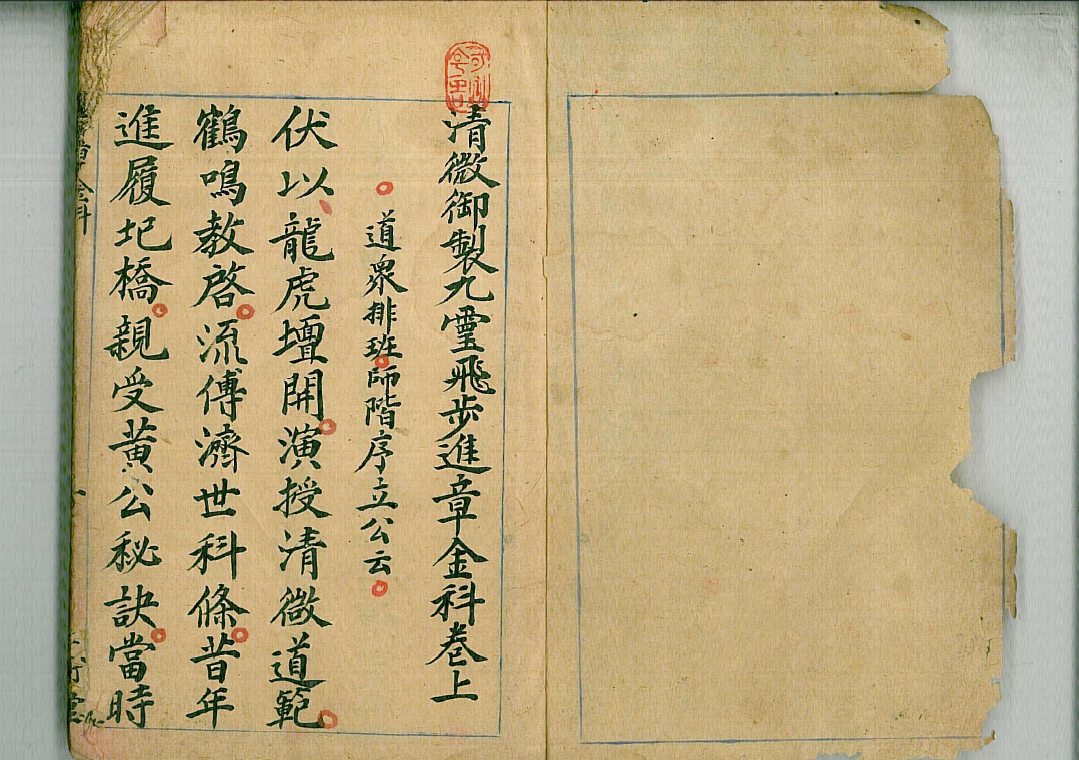 清微御製九靈飛步進章金科卷上
道衆排班師階序立公云
伏以龍虎壇開演授清微道範
鶴鳴教啓流傳濟世科條昔年
進履圯橋親受黃公秘訣當時